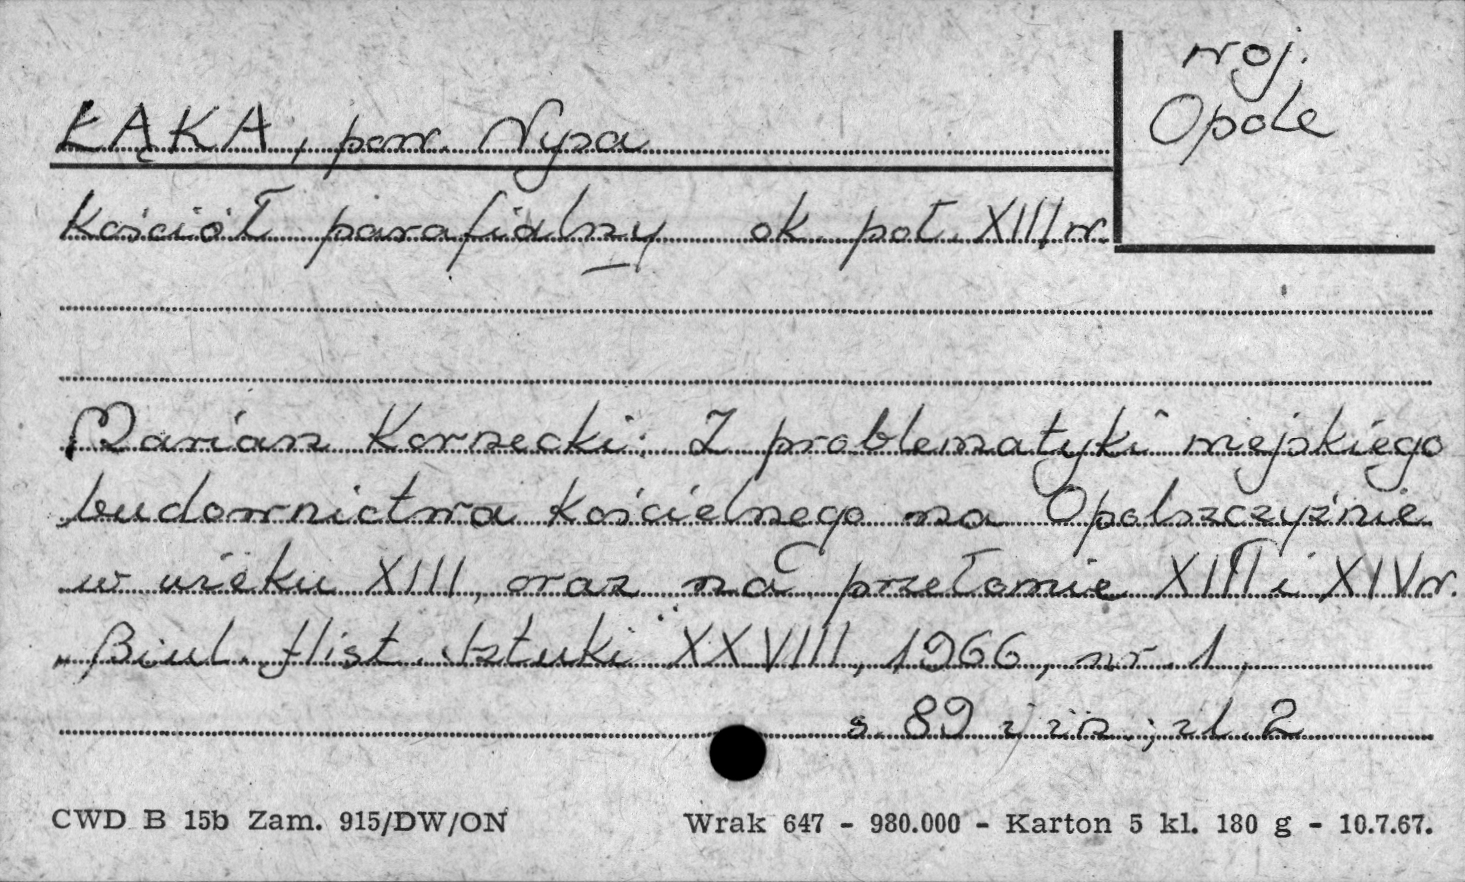 woj.
Opole
ŁĄKA, pow. Nysa
Kościół parafialny ok. poł. XIII w.
Marian Kornecki: Z problematyki wiejskiego
budownictwa kościelnego na Opolszczyźnie
w wieku XIII, oraz na przełomie XIII i XIV w.
„Biul. Hist. Sztuki" XXVIII, 1966, nr. 1,
s. 89 i in.; il. 2
CWD B 15b Zam. 915/DW/ON Wrak 647 - 980.000 - Karton 5 kl. 180 g - 10.7.67.